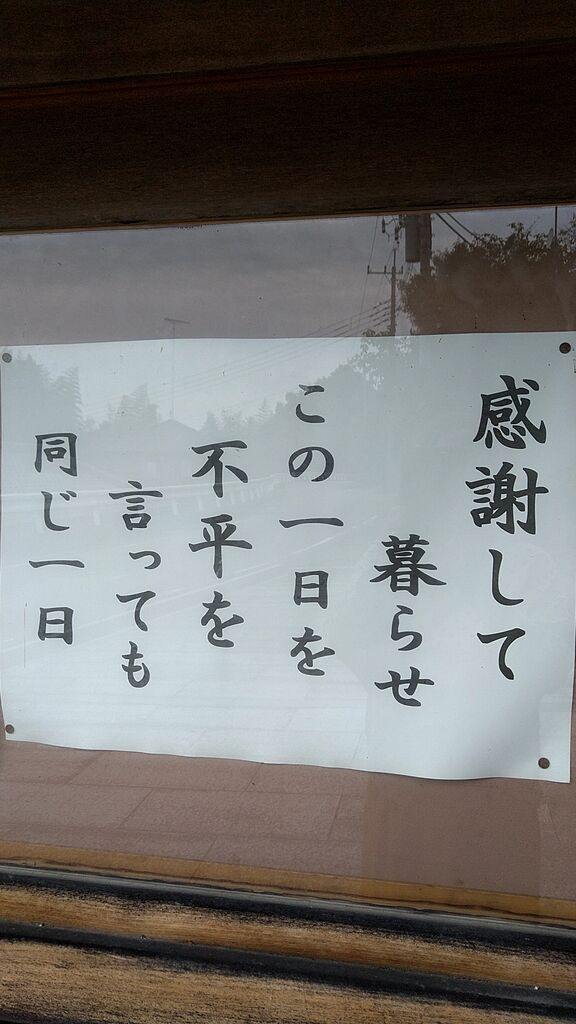 感謝して
暮らせ
この一日を
不平を
言っても
同じ一日